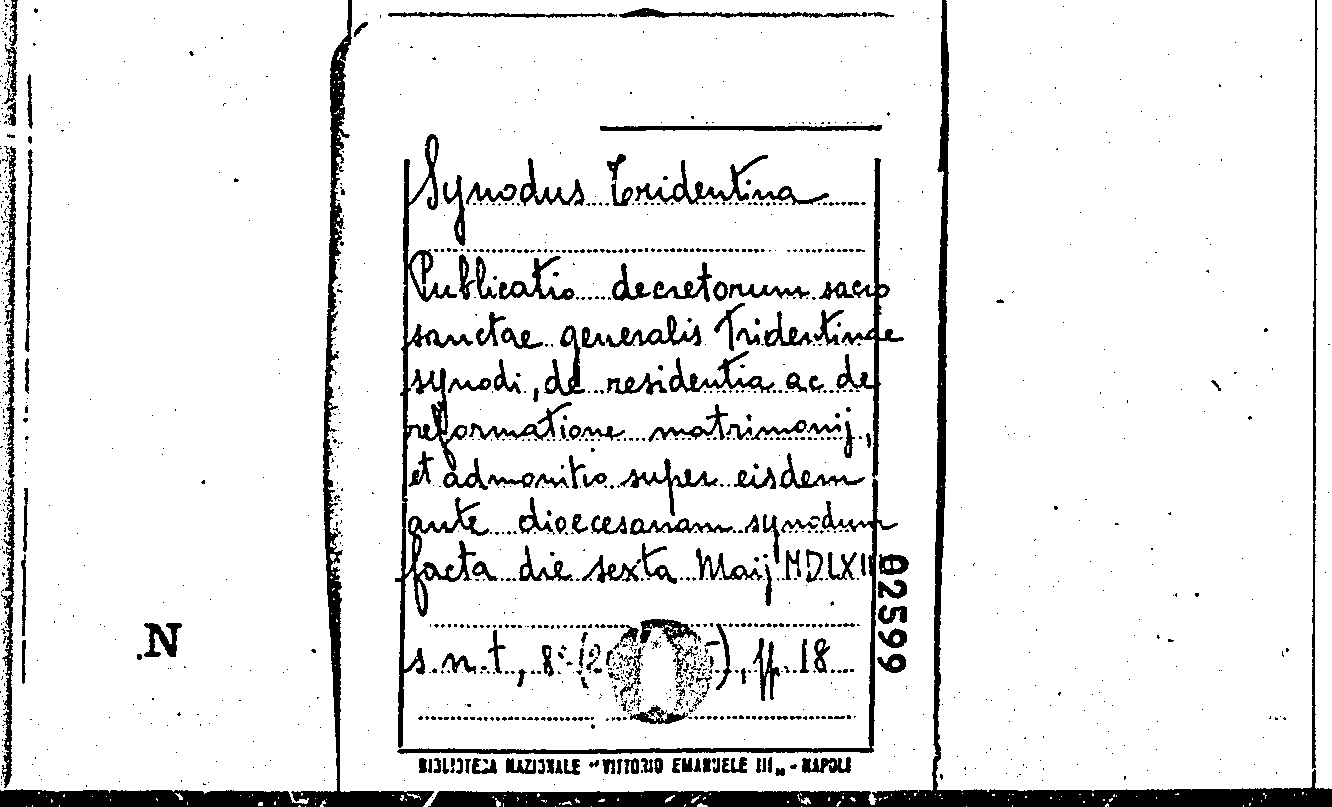 Synodus Tridentina
Publicatio decretorum sacro
sanctae generalis Tridentinae
synodi, de residentia ac de
reformatione matrimonij,
et admonitio super eisdem
ante dioecesanam synodum
facta die sexta Maij MDLXII
s.n.t, 8° (2 ), ff. 18
02599
N
BIBLIOTECA NAZIONALE "VITTORIO EMANUELE III" - NAPOLI